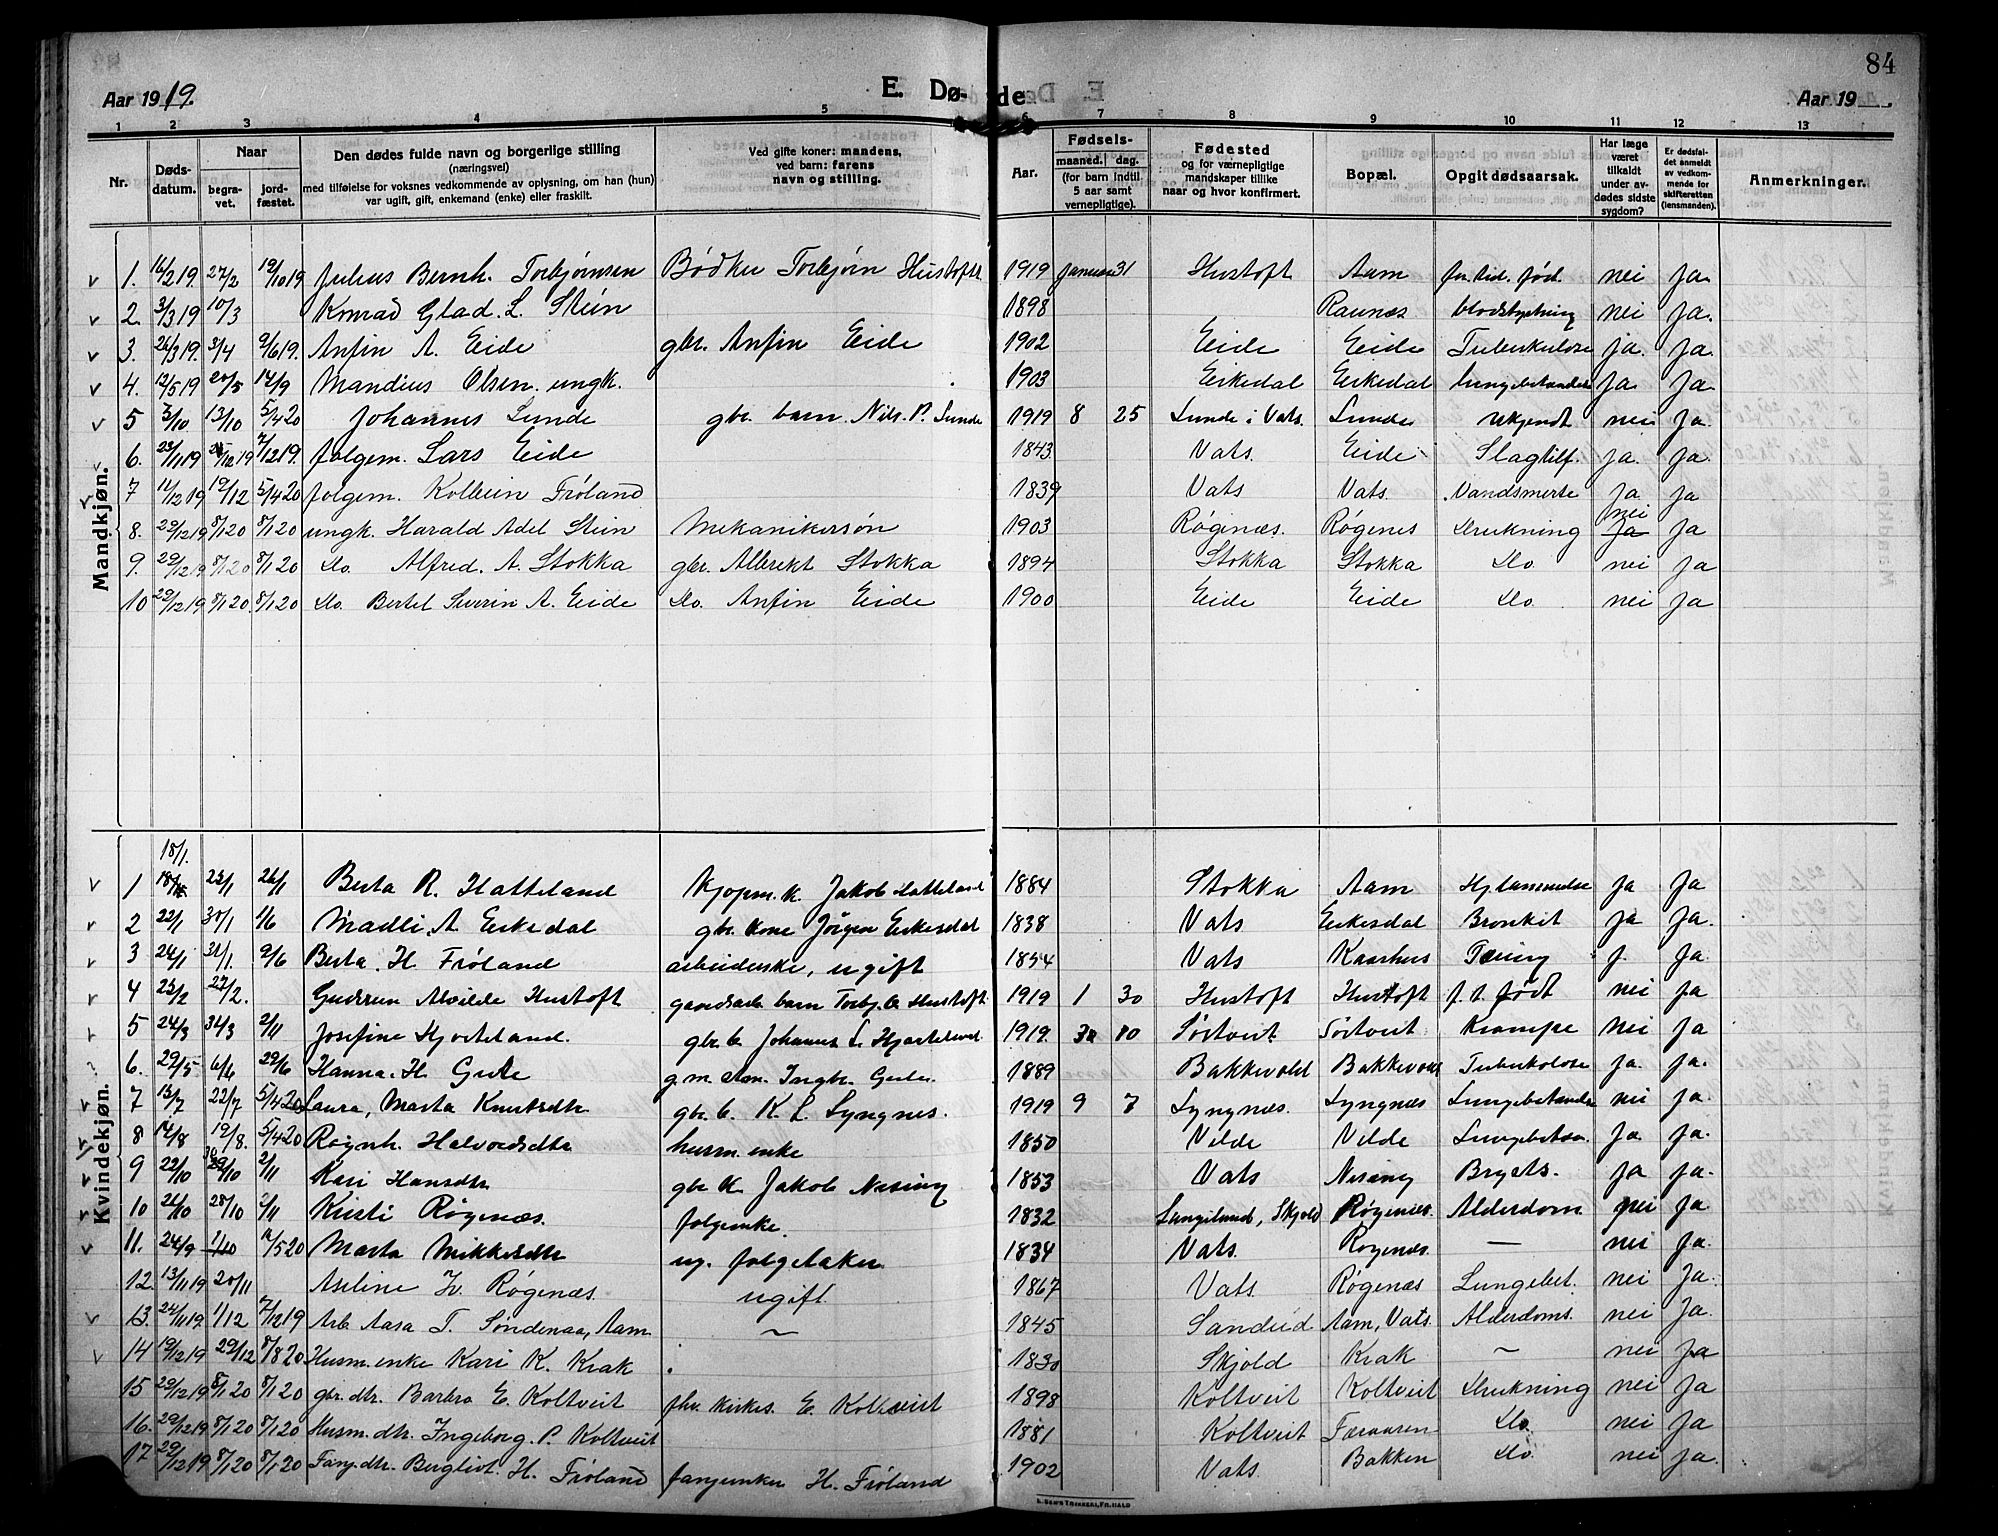 84
Aar 1919.
E. Dø-
de
Aar 19
1 2 3 4 5 6 7 8 9 10 11 12 13
Nr.
Døds-
datum.
Naar
begra-
vet.
jord-
fæstet.
Den dødes fulde navn og borgerlige stilling
(næringsvei)
med tilføielse for voksnes vedkommende av oplysning, om han (hun)
var ugift, gift, enkemand (enke) eller fraskilt.
Ved gifte koner: mandens,
ved barn: farens
navn og stilling.
Aar.
Fødsels-
maaned. dag.
(for barn indtil
5 aar samt
vernepligtige).
Fødested
og for værnepligtige
mandskaper tillike
naar og hvor konfirmert.
Bopæl.
Opgit dødsaarsak.
Har læge
været
tilkaldt
under av-
dødes sidste
sygdom?
Er dødsfal-
det anmeldt
av vedkom-
mende for
skifteretten
(lensmanden).
Anmerkninger.
Mandkjøn.
1. 16/2 19. 27/2 19/10 19 Julius Bernh. Torbjørnsen Bødker Torbjørn Hustoft 1919 Januar 31 Hustoft Aam for tid. fød. nei Ja.
2. 3/3 19 10/3 Konrad Glad. L. Stein 1898 Raunæs blodstyrtning nei Ja.
3. 26/3 19. 3/4 9/6 19. Anfin A. Eide gbr. Anfin Eide 1902 Eide Eide Tuberkulose ja. Ja.
4. 12/5 19 20/5 14/9 Mandius Olsen ungk. 1903 Eikedal Eikedal Lungebetændelse Ja Ja
5 3/10 13/10 5/4 20 Johannes Lunde gbr. barn Nils P. Lunde 1919 8 25 Lunde i Vats. Lunde Ukjendt nei Ja.
6. 23/11 19 /12 19 7/12 19. folgem. Lars Eide 1843 Vats. Eide Slagtilf. ja. Ja.
7 11/12 19 19/12 5/4 20 folgem. Kolbein Frøland 1839 Vats Vats. Vandsmerte Ja Ja
8. 29/12 19 8/1 20 8/1 20 ungk. Harald Adel Stein Mekanikersøn 1903 Røgenæs. Røgenes Drukning nei Ja Ja
9. 29/12 19 8/1 20 8/1 20 Do. Alfred. A. Stokka gbr. Albrekt Stokka 1894 Stokka Stokka Do. nei Ja
10 29/12 19 8/1 20 8/1 20 Do Bertel Severin A. Eide Do. Anfin Eide 1900 Eide Eide Do nei Ja
Kvindekjøn.
18/1.
1 23/1 26/1 Berta R. Hatteland Kjøpm. k. Jakob Hatteland 1884 Stokka Aam Hj.lammelse Ja Ja
2 22/1 30/1 1/6 Madli A. Eikesdal gbr. kone Jørgen Eikesdal 1838 Vats Eikesdal Bronkit Ja Ja.
3 24/1 31/1. 9/6 Berta. H. Frøland arbeiderske, ugift 1854 Vats Kaarhus Tæring J. Ja.
4 23/2 27/2. Gudrun Alvilde Hustoft gaardsarb. barn Torbj. C. Hustoft 1919 1 30 Hustoft Hustoft f. t. født nei Ja
5 24/3 31/3 2/11 Josefine Hjorteland. gbr. b. Johannes L. Hjorteland 1919. 10 Sørtveit Sørtveit Krampe nei Ja
6. 29/5 6/6 29/6 Hanna H. Gute g.m. Ingbr. Gute. 1889 Bakkevold Bakkevold Tuberkolose Ja. Ja.
7 13/7 22/7 5/4 20 Laura, Marta Knutsdtr gbr. b. K. L. Lyngnes. 1919 9 7 Lyngnæs. Lyngnæs Lungebetændelse nei Ja.
8 14/8 19/8. 5/4 20 Ragnh. Halvordsdtr husm. enke 1850 Vilde Vilde Lungebetæn. Ja. Ja.
9 22/10 29/10 2/11 Kari Hansdtr gbr K. Jakob Nesing 1853 Vats Nesing Brysts. Ja Ja.
10 26/10 28/10 2/11 Kristi Røgenæs. folgenke. 1832 Langeland, Skjold Røgenes. Alderdom nei Ja.
11. 24/9 1/10 11/5 20 Marta Mikkelsdtr ug. folgetaker 1834 Vats. Røgenæs. — nei Ja.
12. 13/11 19 20/11 Aseline Røgenæs. ugift 1867 Vats. Røgenæs Lungebet. nei Ja.
13. 24/11 19. 1/12 7/12 19 Arb. Aasa T. Søndenaa, Aam ~ 1845 Sandeid Aam, Vats. Alderdoms. nei Ja.
14 19/12 19 29/12 8/8 20 Husm. enke Kari K. Krak 1830 Skjold Krak ~ nei Ja
15 29/12 19 8/1 20 8/1 20 gbr. dtr. Barbra E. Koltveit fhv. kirkes. E. Koltveit 1898 Koltveit Koltveit Drukning nei Ja
16. 29/12 19 8/1 20 8/1 20 Husm. dtr. Ingeborg. P. Koltveit 1881 Koltveit Do nei Ja
17 29/12 19 8/1 20 8/1 20 Fanj. dtr. Bergliot. H. Frøland fanjunker H. Frøland 1902 Vats. Bakken Do. nei Ja.